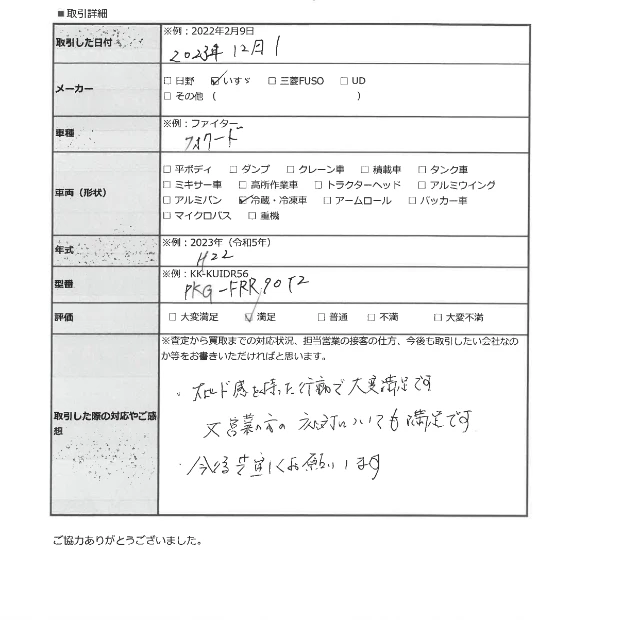 ■ 取引詳細
取引した日付
※例：2022年2月9日
2023年 12月1
メーカー
□ 日野 ☑ いすゞ □ 三菱FUSO □ UD
□ その他 （ ）
車種
※例：ファイター
フォワード
車両（形状）
□ 平ボディ □ ダンプ □ クレーン車 □ 積載車 □ タンク車
□ ミキサー車 □ 高所作業車 □ トラクターヘッド □ アルミウイング
□ アルミバン ☑ 冷蔵・冷凍車 □ アームロール □ パッカー車
□ マイクロバス □ 重機
年式
※例：2023年（令和5年）
H22
型番
※例：KK-KUIDR56
PKG-FRR90T2
評価
□ 大変満足 ☑ 満足 □ 普通 □ 不満 □ 大変不満
取引した際の対応やご感想
※査定から買取までの対応状況、担当営業の接客の仕方、今後も取引したい会社なのか等をお書きいただければと思います。
・スピード感を持った行動で大変満足です
又営業の方の対応についても満足です
・今後も宜しくお願いします
ご協力ありがとうございました。